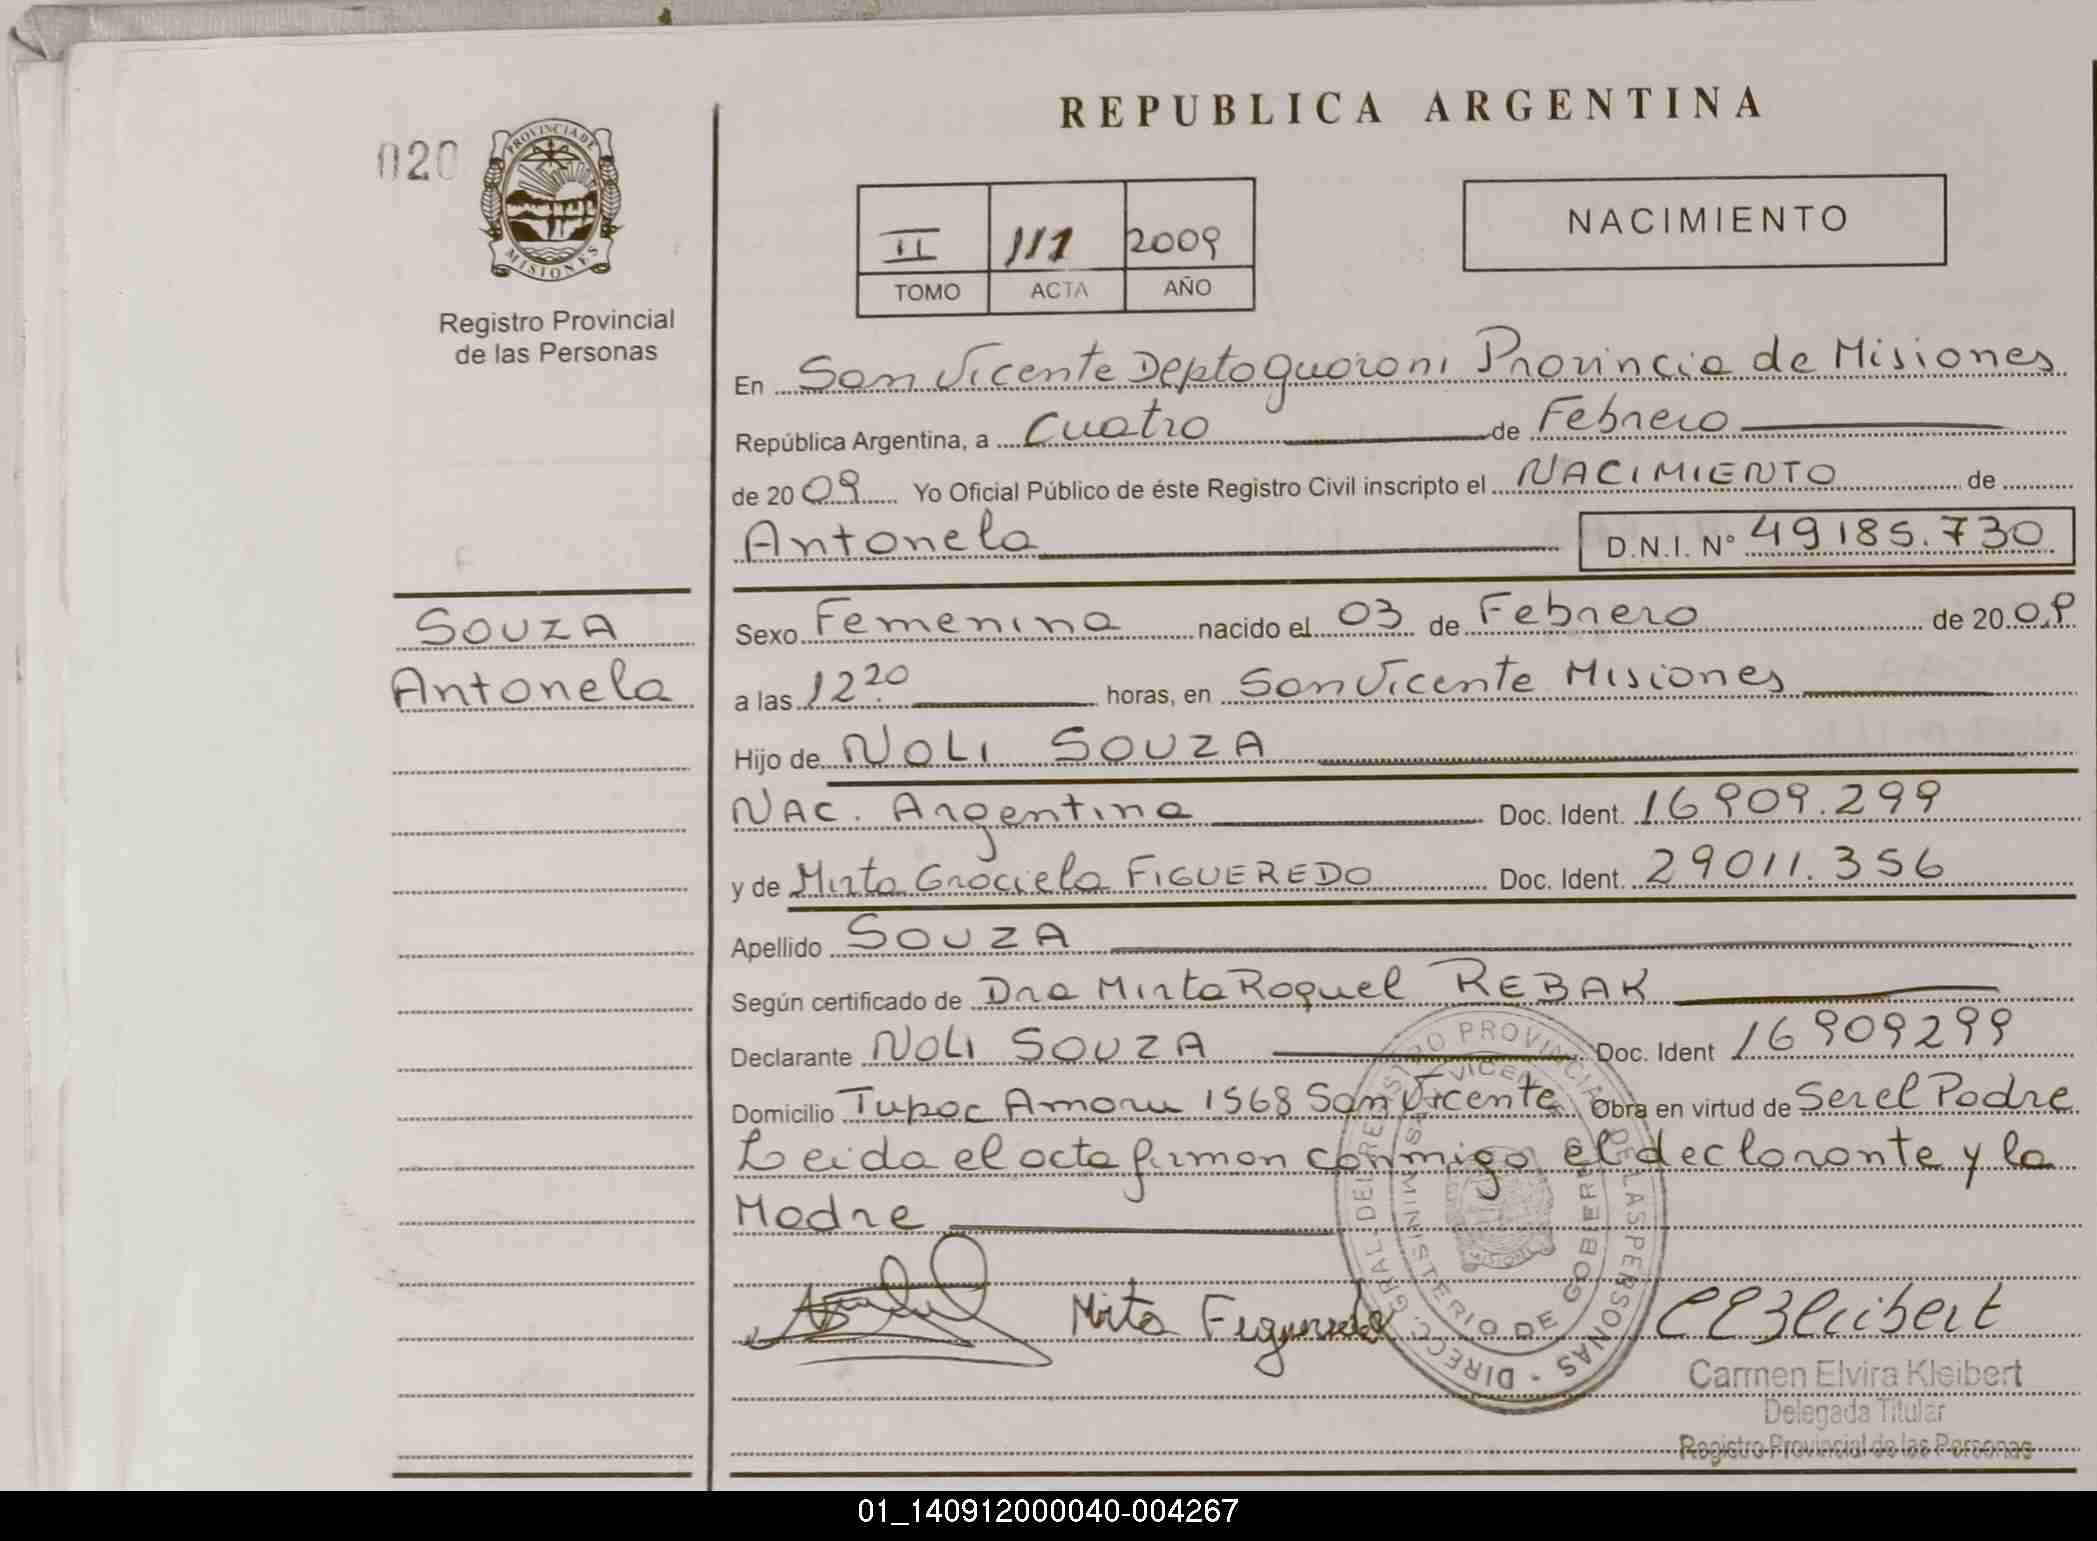 REPUBLICA ARGENTINA
020
PROVINCIA DE
MISIONES
Registro Provincial
de las Personas
NACIMIENTO
II 111 2009
TOMO ACTA AÑO
En San Vicente Depto guarani Provincia de Misiones
República Argentina, a Cuatro de Febrero
de 2009 Yo Oficial Público de éste Registro Civil inscripto el NACIMIENTO de
Antonela D.N.I. N° 49185.730
SOUZA
Antonela
Sexo Femenina nacido el 03 de Febrero de 2009
a las 12 20 horas, en San Vicente Misiones
Hijo de NOLI SOUZA
NAC. Argentina Doc. Ident. 16909.299
y de Mirta Graciela FIGUEREDO Doc. Ident. 29011.356
Apellido SOUZA
Según certificado de Dra Mirta Raquel REBAK
Declarante NOLI SOUZA Doc. Ident 16909299
Domicilio Tupac Amaru 1568 San Vicente Obra en virtud de Ser el Padre
Leida el acta firman conmigo el declarante y la
Madre
Mirta Figueredo
DIRECC. GRAL. DEL REGISTRO PROVINCIAL DE LAS PERSONAS
MINISTERIO DE GOBIERNO
Carmen Elvira Kleibert
Delegada Titular
Registro Provincial de las Personas
01_140912000040-004267